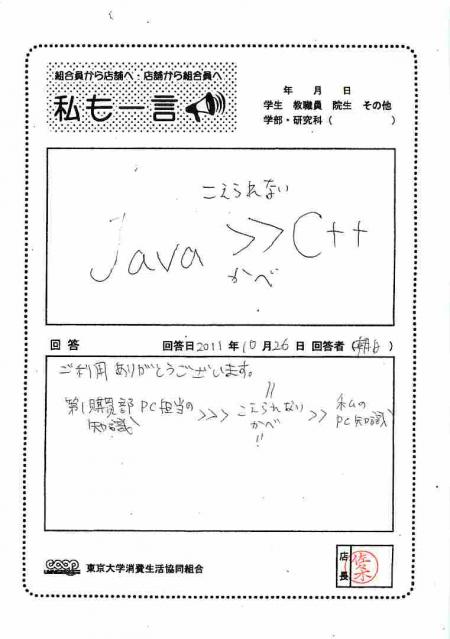 組合員から店舗へ・店舗から組合員へ
私も一言
年 月 日
学生 教職員 院生 その他
学部・研究科( )
こえられない
Java >> C++
かべ
回答 回答日2011年10月26日 回答者(朝日)
ご利用ありがとうございます。
第1購買部PC担当の知識 >>> こえられないかべ!! >> 私のPC知識
coop 東京大学消費生活協同組合
店長